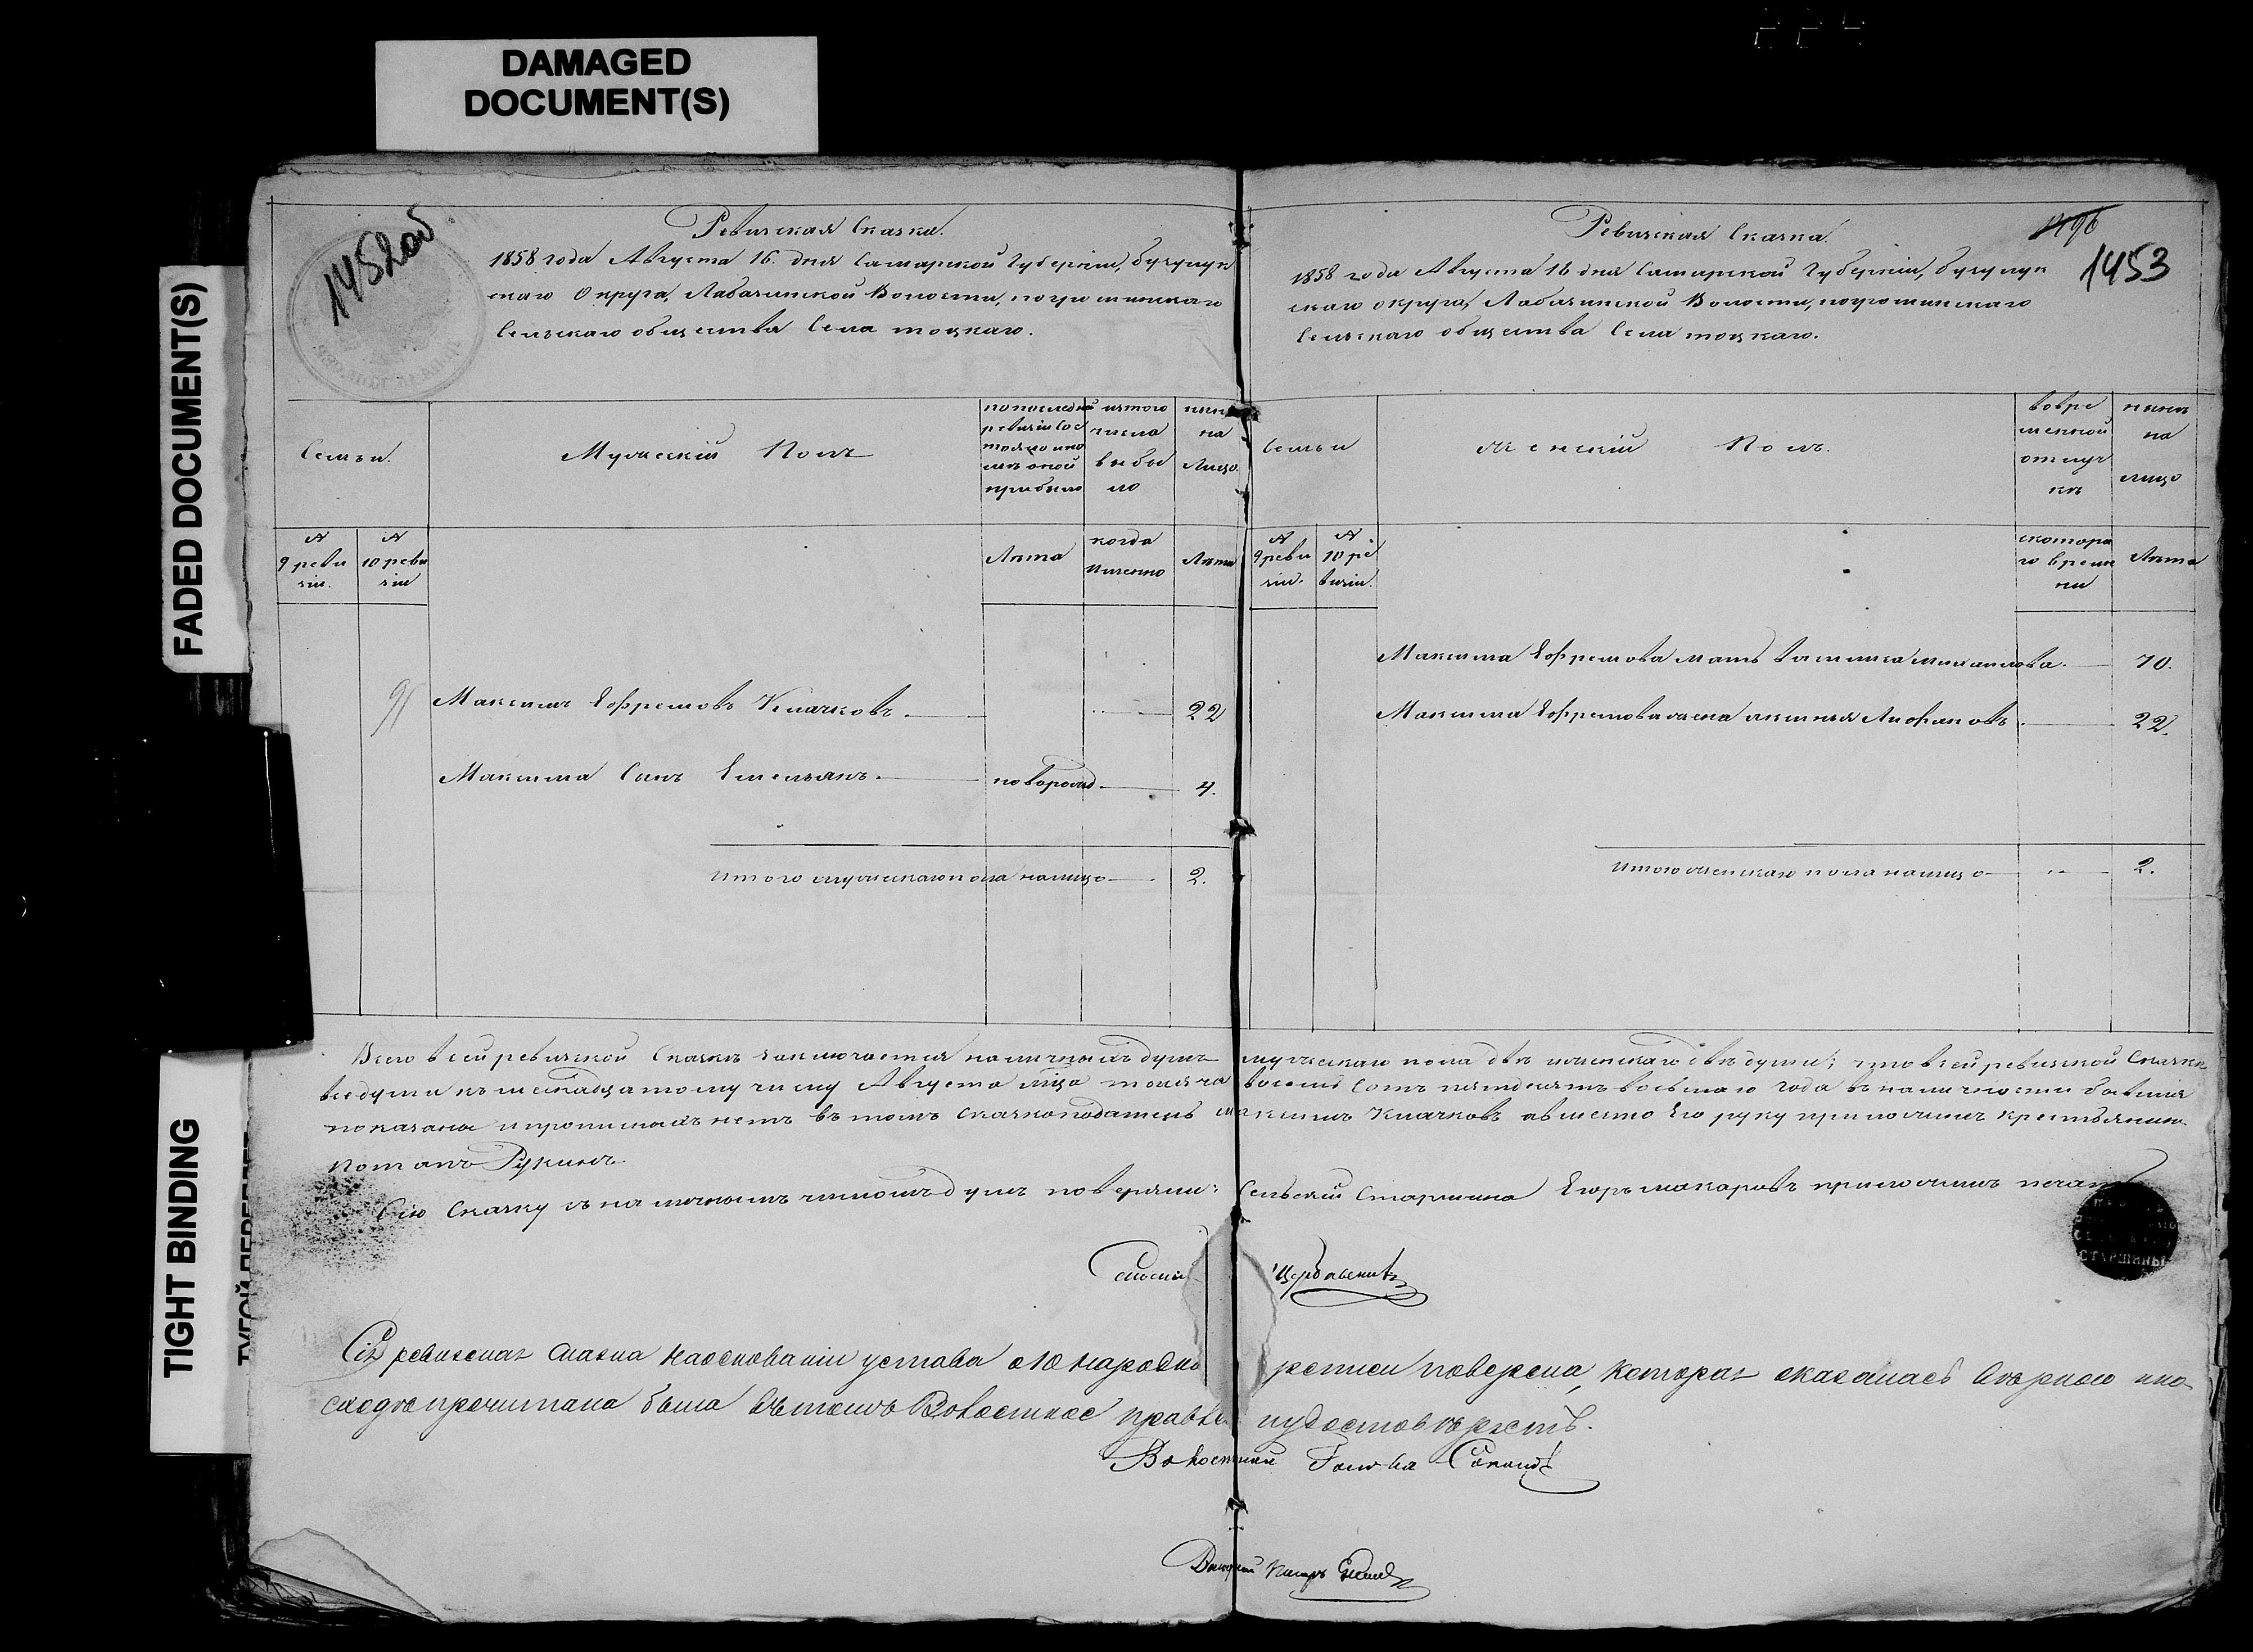 DAMAGED
DOCUMENT(S)
FADED DOCUMENT(S)
TIGHT BINDING
1452об
Ревизская Сказка.
1858 года Августа 16. дня Самарской Губерніи, бузулук
скаго Округа, Лабазинской Волости, погроминскаго
Сельскаго общества Села тоцкаго.
Семьи.
Мужескій Полъ
по последней ревизіи состояло и после оной прибыло
изъ того числа выбыло
ныне на Лицо.
№ 9 ревизіи.
№ 10 ревизіи
Лета
когда именно
Лета
91
Максимъ Ефремовъ Клачковъ. 22
Максима Сынъ Емельянъ. новорожд. 4.
Итого мужескаго пола налицо 2.
Ревизская Сказка.
1453
1858 года Августа 16 дня Самарской Губерніи, бузулук
скаго округа, Лабазинской Волости, погроминскаго
Сельскаго общества Села тоцкаго.
Семьи
Женскій Полъ.
во временной отлучке
ныне на лицо
№ 9 ревизіи.
№ 10 ревизіи.
с котораго времени
Лета
Максима Ефремова мать михаилова. 70.
Максима Ефремова жена 22.
Итого женскаго пола налицо 2.
Всего в сей ревизской Сказке заключается наличныхъ душъ мужескаго пола две женскаго две души; что в сей ревизской Сказке
все души къ шестнадцатому числу Августа месяца тысяча восемь Сотъ пятдесятъ восьмаго года въ наличности бывшія
показаны и прописныхъ нетъ въ томъ Сказкоподатель максимъ Клачковъ а вместо Его руку приложилъ крестьянинъ
Потапъ Рукинъ.
Сію Сказку съ наличнымъ числомъ душъ поверяли: Сельскій Старшина Егоръ макаровъ приложилъ печать
СТАРШИНЫ
Сія ревизская сказка на основаніи устава о 10 народно реписи поверена, которая оказалась верною и на
сходе прочитана была въ томъ Волостное правле и удостоверяетъ.
Волостной Голова
Волостной Писарь